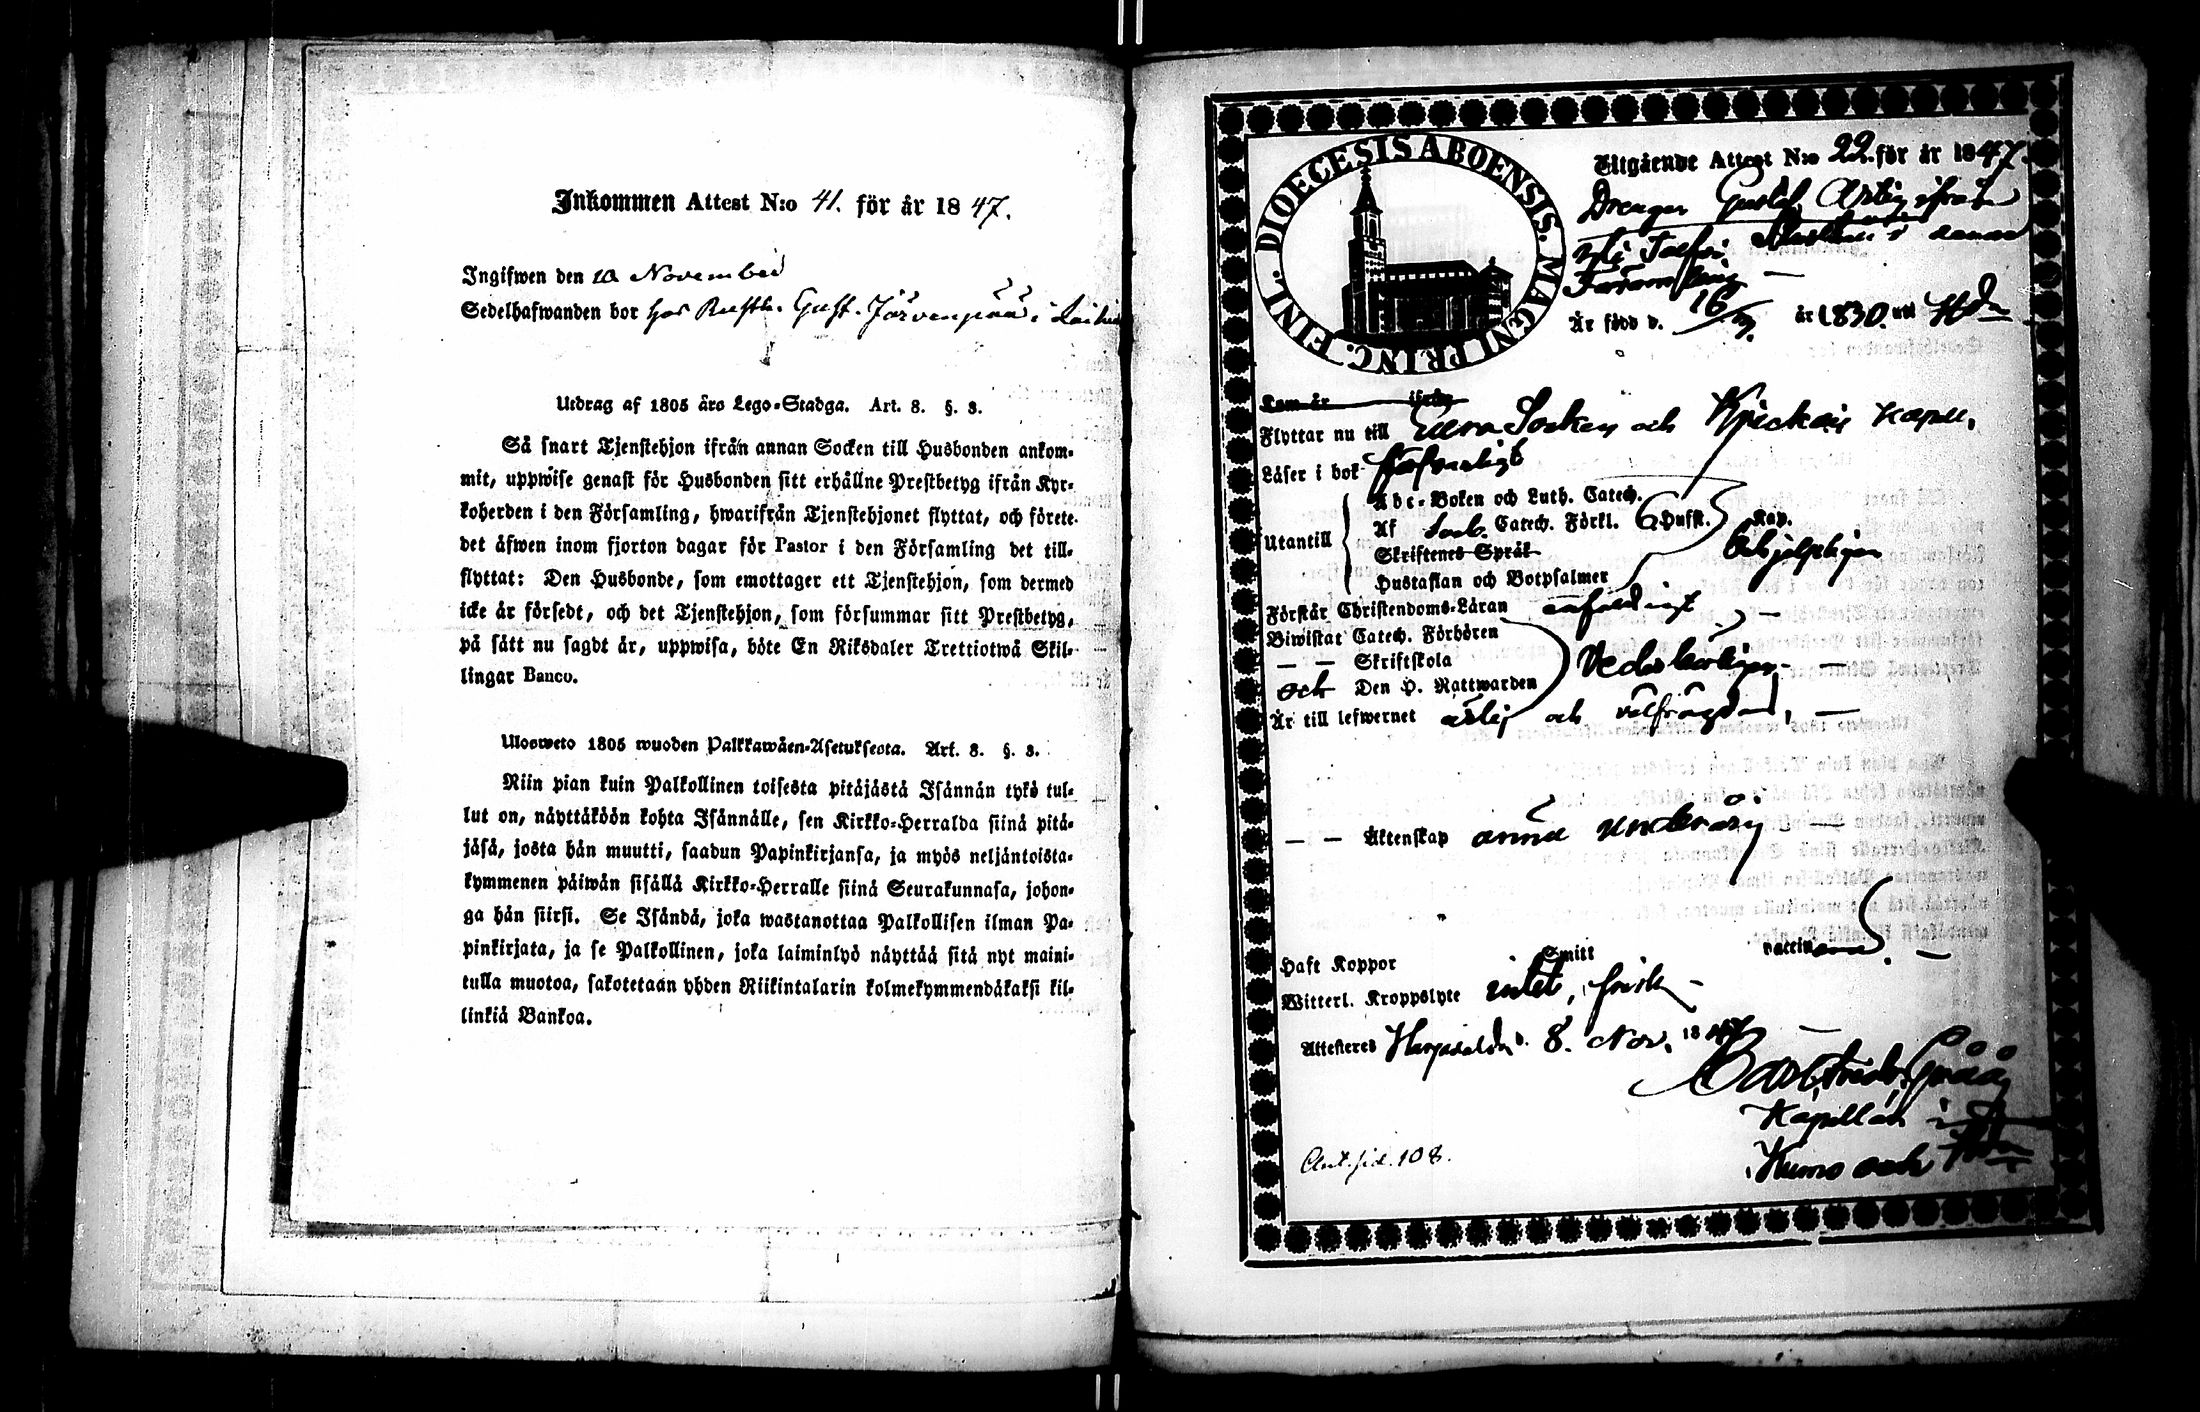 Inkommen Attest N:o 41. för år 1847.
Ingifwen den 10 November
Sedelhafwanden bor hos Rusth. Gust. Järvenpää i
Utdrag af 1805 års Lego-Stadga. Art. 8. §. 3.
Så snart Tjenstehjon ifrån annan Socken till Husbonden ankom-
mit, uppwise genast för Husbonden sitt erhållne Prestbetyg ifrån Kyr-
koherden i den Församling, hwarifrån Tjenstehjonet flyttat, och förete
det äfwen inom fjorton dagar för Pastor i den Församling det till-
flyttat: Den Husbonde, som emottager ett Tjenstehjon, som dermed
icke är försedt, och det Tjenstehjon, som försummar sitt Prestbetyg,
på sätt nu sagdt är, uppwisa, böte En Riksdaler Trettiotwå Skil-
lingar Banco.
Ulosweto 1805 wuoden Palkkawäen-Asetuksesta. Art. 8. §. 3.
Niin pian kuin Palkollinen toisesta pitäjästä Isännän tykö tul-
lut on, näyttäköön kohta Isännälle, sen Kirkko-Herralda siinä pitä-
jäsä, josta hän muutti, saadun Papinkirjansa, ja myös neljäntoista-
kymmenen päiwän sisällä Kirkko-Herralle siinä Seurakunnasa, johon-
ga hän siirsi. Se Isändä, joka wastanottaa Palkollisen ilman Pa-
pinkirjata, ja se Palkollinen, joka laiminlyö näyttää sitä nyt maini-
tulla muotoa, sakotetaan yhden Riikintalarin kolmekymmendäkaksi kil-
linkiä Bankoa.
DIOECESIS ABOENSIS. MAGNI PRINC. FINL.
Utgående Attest N:o 22. för år 1847.
Drengen Gustaf ifrån
i samma
Församling —
Är född d. 16/ år 1830. uti
Kom år ifrån
Flyttar nu till Eura Socken och Kjuckais Kapell.
Läser i bok försvarligt
Utantill
Abc-Boken och Luth. Catech.
Af Catech. Förkl. 6 Hufst. Kap.
Skriftenes Språk
Hustaflan och Botpsalmer
Behjelpligen
Förstår Christendoms-Läran enfaldigt —
Biwistat Catech. Förhören
— — Skriftskola
och Den H. Nattwarden
Vederbörligen —
Är till lefwernet ärlig och välfrägdad, —
— — Äktenskap ännu underårig —
Haft Koppor Smitt vaccinerad. —
Witterl. Kroppslyte intet, frisk —
Attesteres Harjavalda d. 8. Nov. 1847 —
Carl Fredr. Gråå
Kapellan i
Kumo och
Ant. sid. 108.